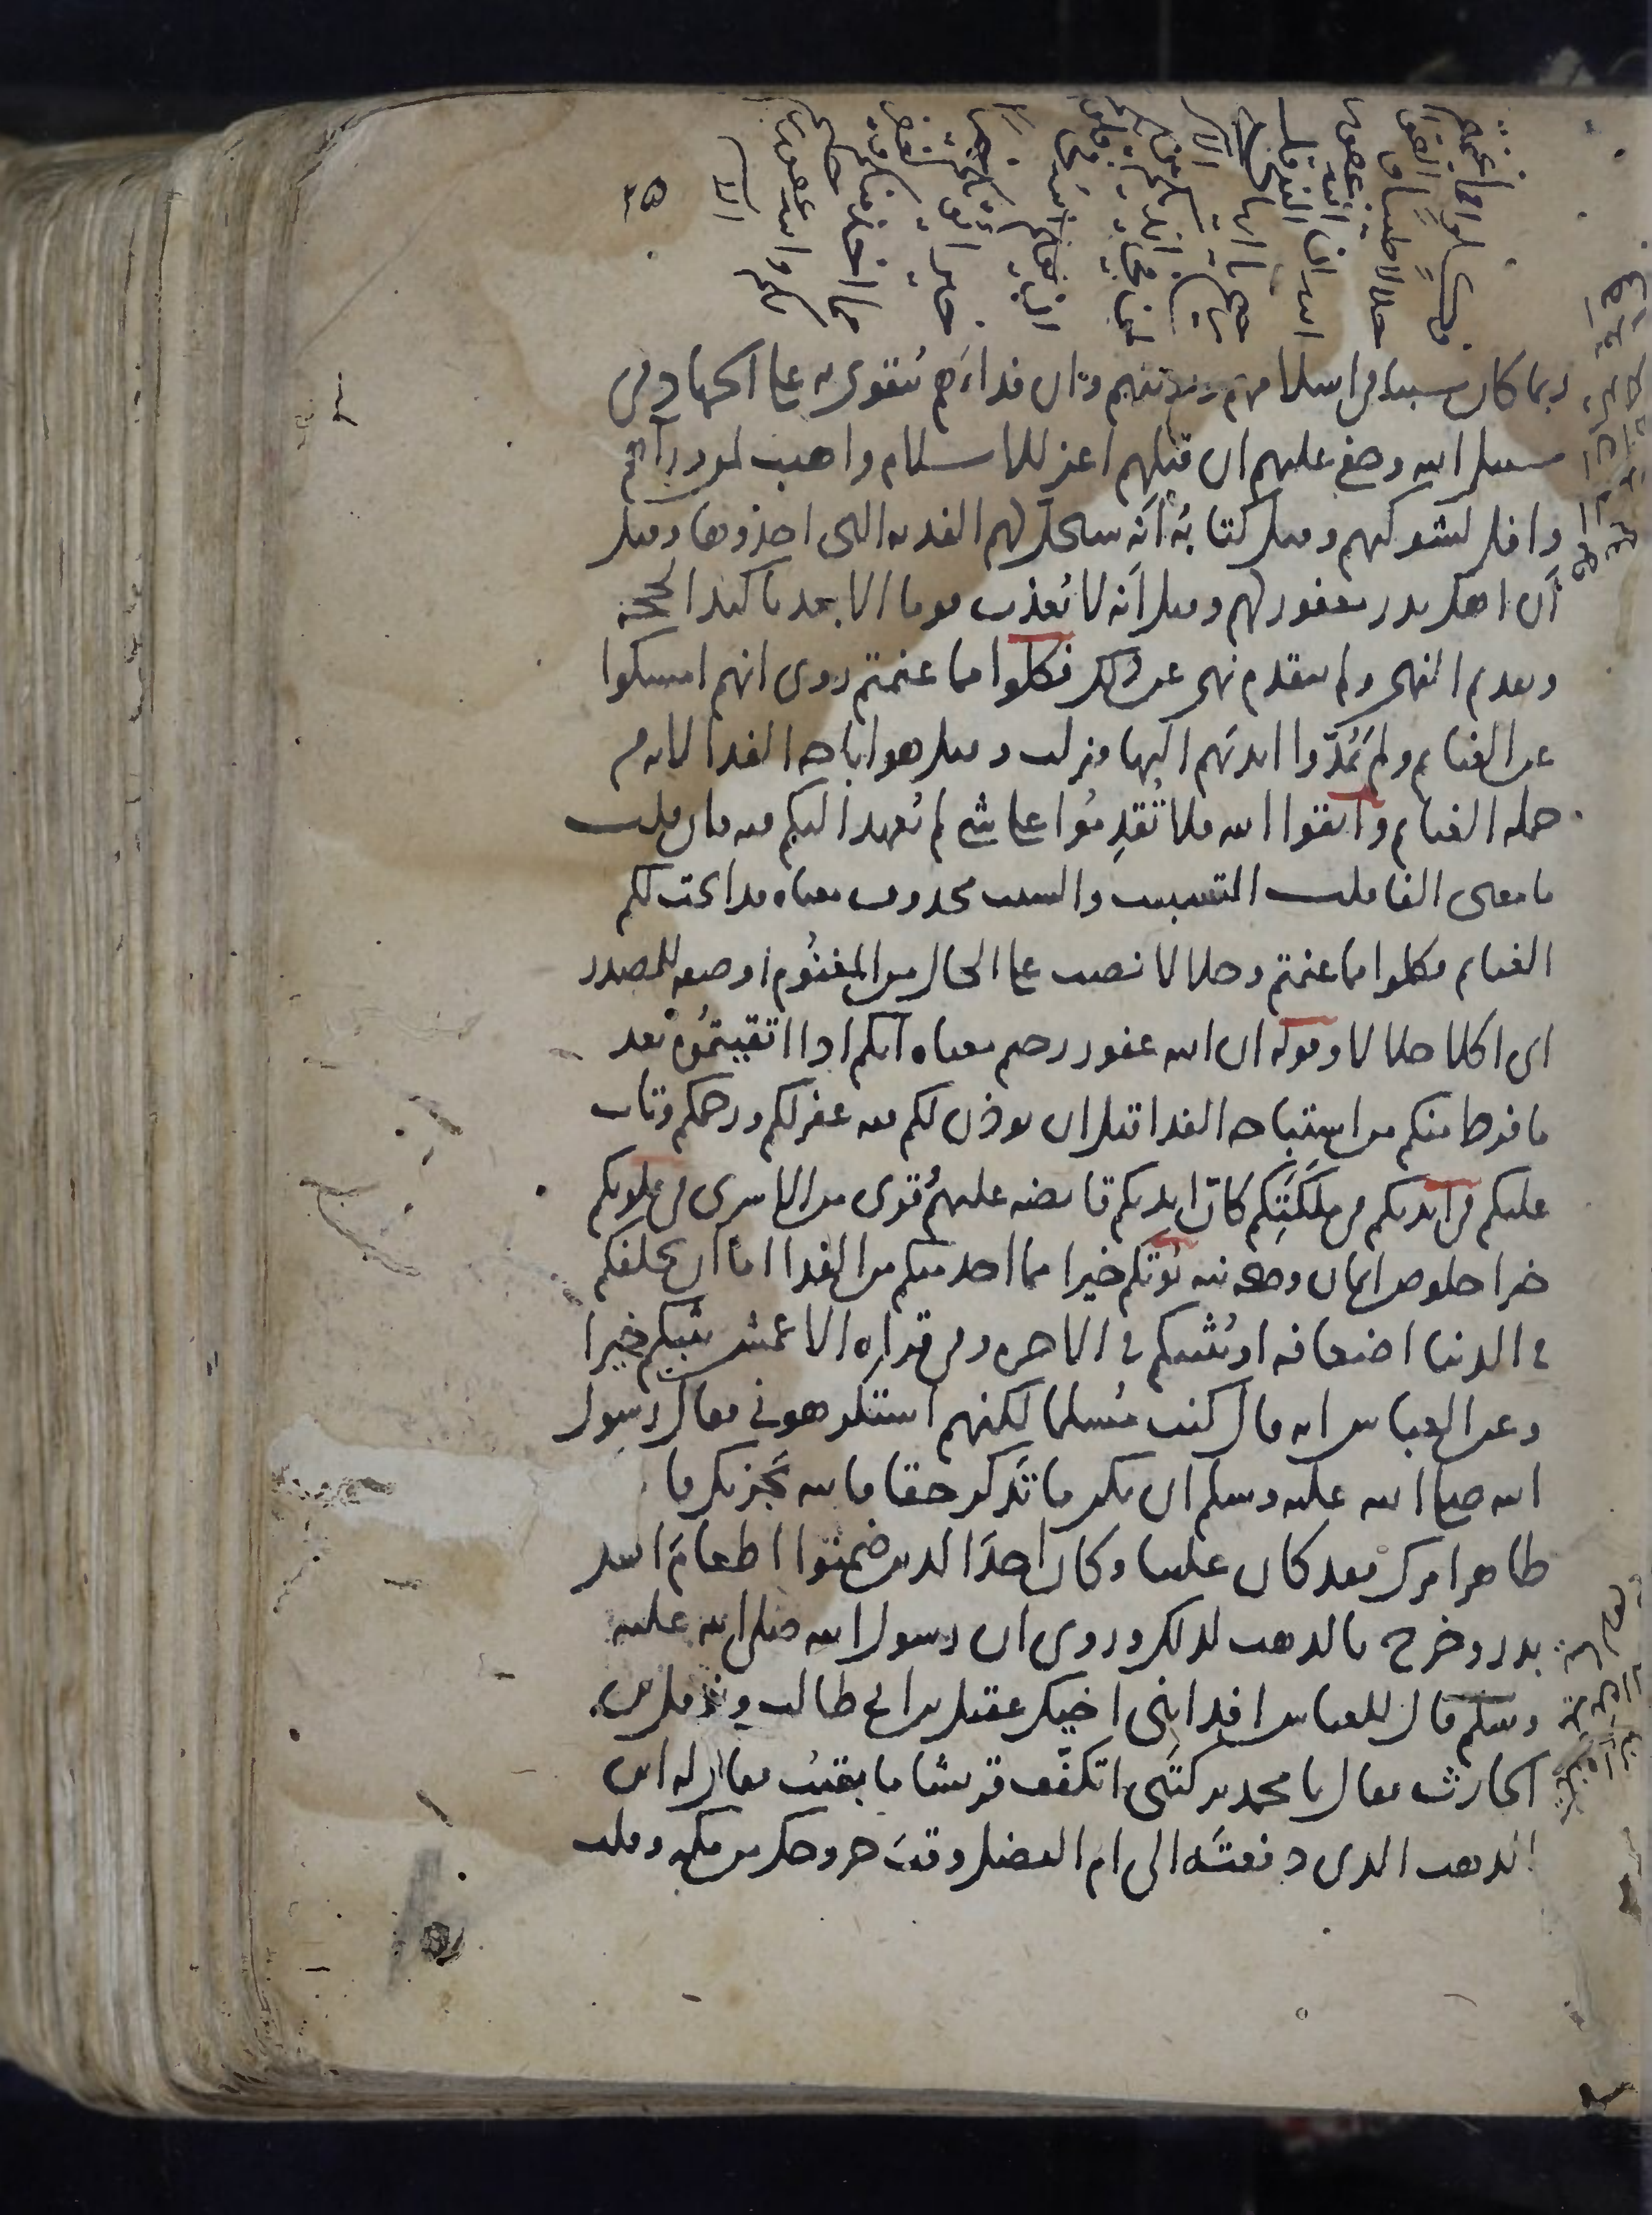 فكلوا مما غنمتم
حلالا طيبا واتقوا
الله ان الله غفور
رحيم يا ايها النبي قل
لمن في ايديكم من الاسرى
ان يعلم الله في قلوبكم
خيرا يؤتكم خيرا
مما اخذ منكم ويغفر
لكم والله غفور رحيم
٣٥
ربما كان سببا في اسلامهم وتوبتهم وان فداءهم يتقوى به على الجهاد في
سبيل الله وخفي عليهم ان قتلهم اعز للاسلام واهيب لمن وراءهم
وافل لشوكتهم وقيل كتابه انه سيحل لهم الفدية التي اخذوها وقيل
ان اهل بدر مغفور لهم وقيل انه لا يعذب قوما الا بعد تاكيد الحجة
وتقديم النهي ولم يتقدم نهي عن ذلك فكلوا مما غنمتم روى انهم امسكوا
عن الغنايم ولم يمدوا ايديهم اليها فنزلت وقيل هو اباحة الفدا لانه من
جملة الغنايم واتقوا الله فلا تقدموا على شي لم يعهد اليكم فيه فان قلت
ما معنى الفا قلت التسبيب والسبب محذوف معناه قد ابحت لكم
الغنايم فكلوا مما غنمتم وحلالا نصب على الحال من المغنوم او صفه للمصدر
اي اكلا حلالا وقوله ان الله غفور رحيم معناه انكم اذا اتقيتموه بعد
ما فرط منكم من استباحة الفدا قبل ان يوذن لكم فيه غفر لكم ورحمكم وتاب
عليكم في ايديكم في ملكتكم كان ايديكم قابضة عليهم قرى من الاسرى في قلوبكم
خيرا خلوص ايمان وصحة نية يؤتكم خيرا مما اخذ منكم من الفدا اما ان يخلفكم
في الدنيا اضعافه او يثيبكم في الاخرة وفي قراءة الاعمش يثيبكم خيرا
وعن العباس انه قال كنت مسلما لكنهم استكرهوني فقال رسول
الله صلى الله عليه وسلم ان يكن ما تذكر حقا فالله يجزيك فاما
ظاهر امرك فقد كان علينا وكان احد الذين ضمنوا اطعام اهل
بدر وخرج بالذهب لذلك وروى ان رسول الله صلى الله عليه
وسلم قال للعباس افد ابني اخيك عقيل بن ابي طالب ونوفل بن
الحارث فقال يا محمد تركتني اتكفف قريشا ما بقيت فقال له اين
الذهب الذي دفعته الى ام الفضل وقت خروجك من مكة وقلت